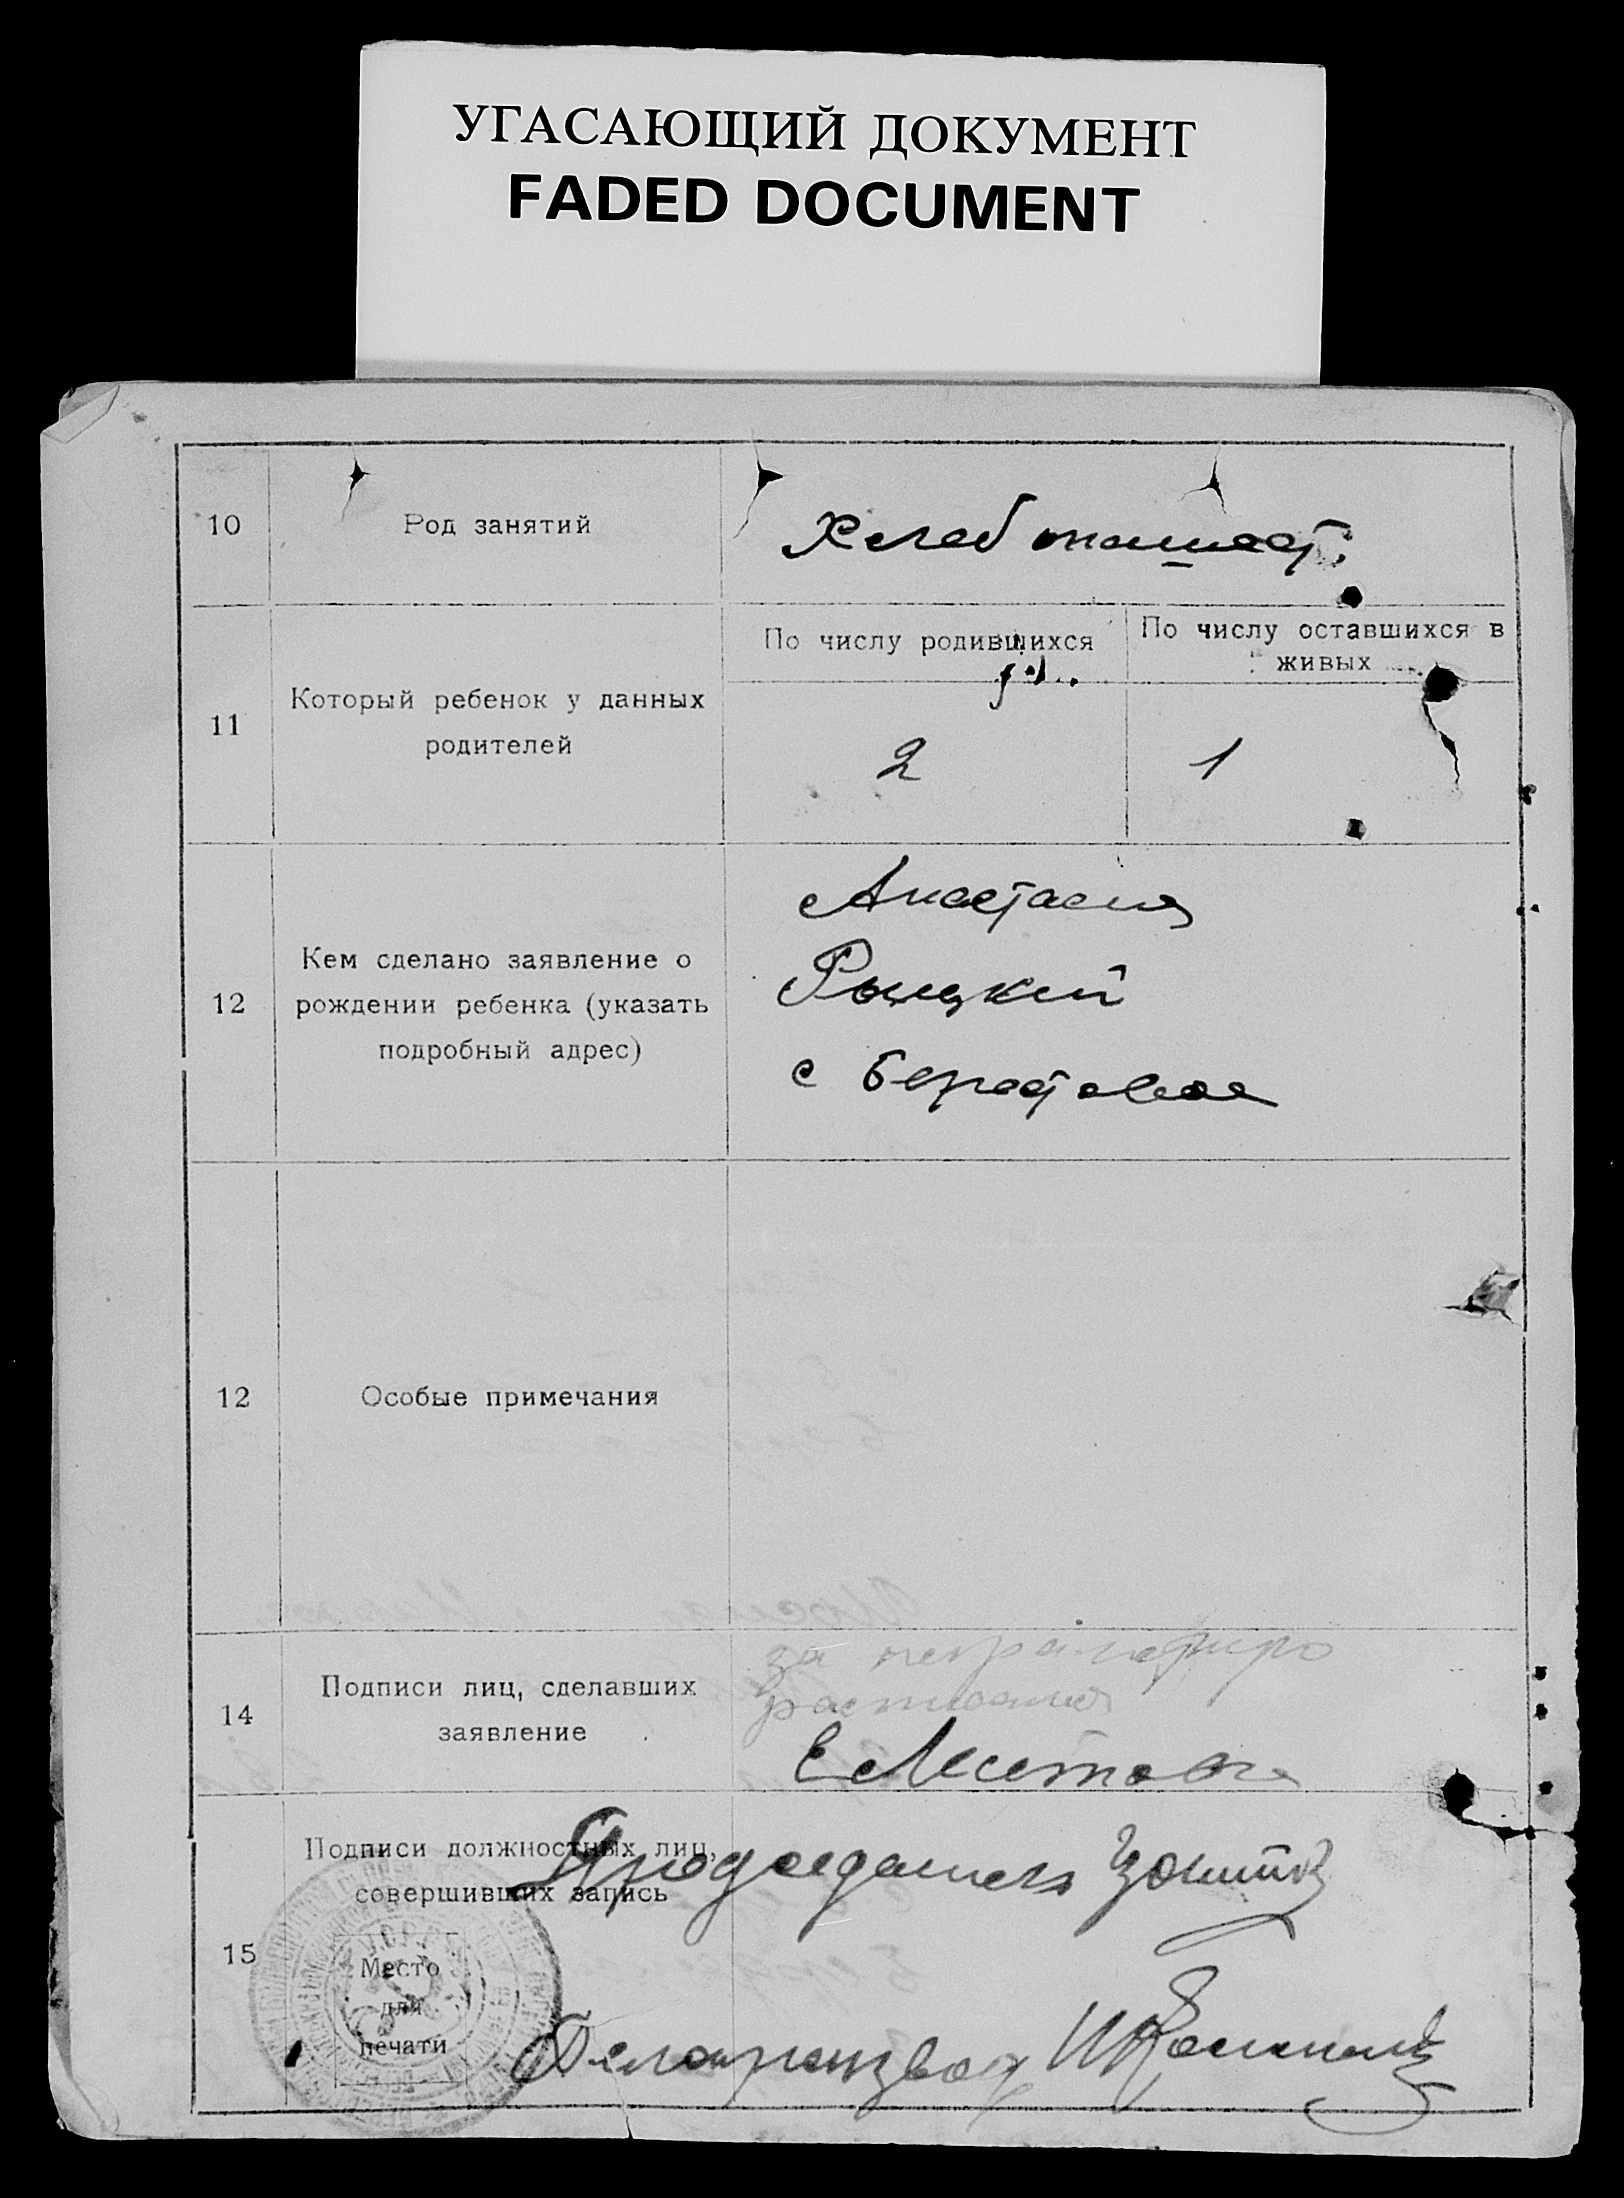 УГАСАЮЩИЙ ДОКУМЕНТ
FADED DOCUMENT
10
Род занятий
Хлебопашест.
11
Который ребенок у данных
родителей
По числу родившихся
По числу оставшихся в
живых
2
1
12
Кем сделано заявление о
рождении ребенка (указать
подробный адрес)
Анастасия
Рыцкий
с Берестовая
12
Особые примечания
14
Подписи лиц, сделавших
заявление
за
15
Подписи должностных лиц,
совершивших запись
Место
для
печати
Председатель
Делопроизвод